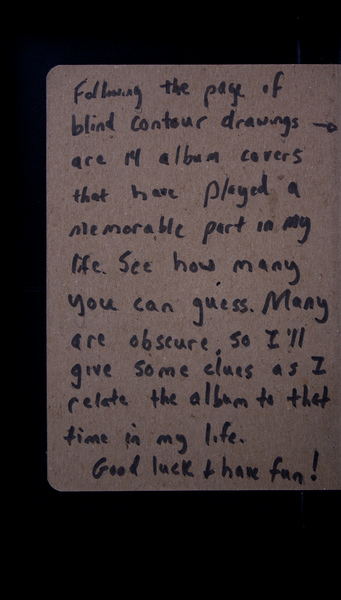 Following the page of
blind contour drawings →
are 14 album covers
that have played a
memorable part in my
life. See how many
you can guess. Many
are obscure, so I'll
give some clues as I
relate the album to that
time in my life.
Good luck & have fun!